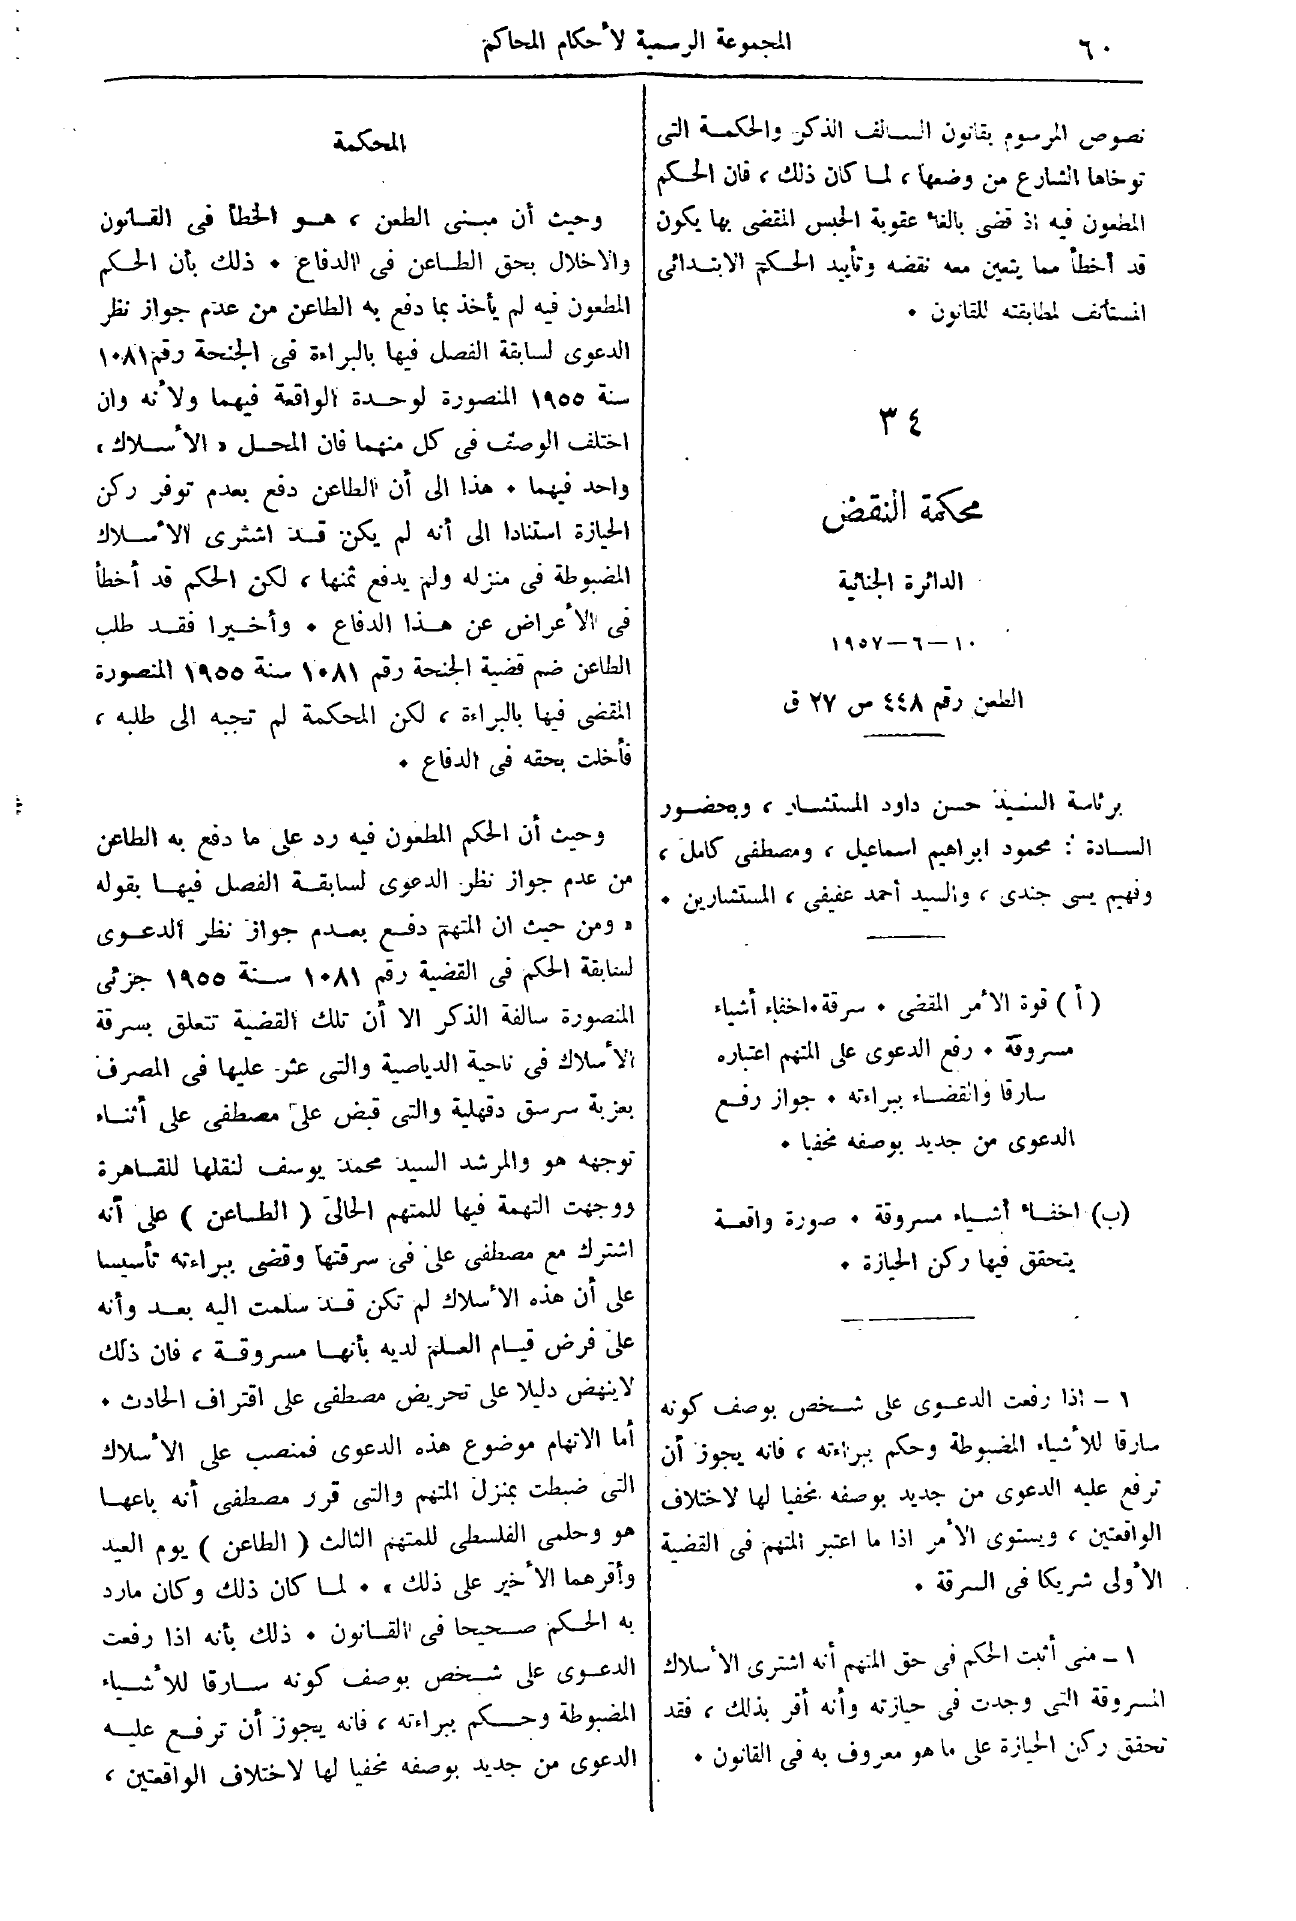 ٦٠
المجموعة الرسمية لأحكام المحاكم
نصوص المرسوم بقانون السالف الذكر والحكمة التى
توخاها الشارع من وضعها ، لما كان ذلك ، فان الحكم
المطعون فيه اذ قضى بالغاء عقوبة الحبس المقضى بها يكون
قد أخطأ مما يتعين معه نقضه وتأييد الحكم الابتدائى
المستأنف لمطابقته للقانون •
٣٤
محكمة النقض
الدائرة الجنائية
١٠ – ٦ – ١٩٥٧
الطعن رقم ٤٤٨ ص ٢٧ ق
برئاسة السيد حسن داود المستشار ، وبحضور
السادة : محمود ابراهيم اسماعيل ، ومصطفى كامل ،
وفهيم يسى جندى ، والسيد أحمد عفيفى ، المستشارين •
( أ ) قوة الأمر المقضى • سرقة • اخفاء أشياء
مسروقة • رفع الدعوى على المتهم اعتباره
سارقا والقضاء ببراءته • جواز رفع
الدعوى من جديد بوصفه مخفيا •
(ب) اخفاء أشياء مسروقة • صورة واقعة
يتحقق فيها ركن الحيازة •
١ – اذا رفعت الدعوى على شخص بوصف كونه
سارقا للأشياء المضبوطة وحكم ببراءته ، فانه يجوز أن
ترفع عليه الدعوى من جديد بوصفه مخفيا لها لاختلاف
الواقعتين ، ويستوى الأمر اذا ما اعتبر المتهم فى القضية
الأولى شريكا فى السرقة •
١ – متى أثبت الحكم فى حق المتهم أنه اشترى الأسلاك
المسروقة التى وجدت فى حيازته وأنه أقر بذلك ، فقد
تحقق ركن الحيازة على ما هو معروف به فى القانون •
المحكمة
وحيث أن مبنى الطعن ، هو الخطأ فى القانون
والاخلال بحق الطاعن فى الدفاع • ذلك بأن الحكم
المطعون فيه لم يأخذ بما دفع به الطاعن من عدم جواز نظر
الدعوى لسابقة الفصل فيها بالبراءة فى الجنحة رقم ١٠٨١
سنة ١٩٥٥ المنصورة لوحدة الواقعة فيهما ولأنه وان
اختلف الوصف فى كل منهما فان المحل « الأسلاك »
واحد فيهما • هذا الى أن الطاعن دفع بعدم توفر ركن
الحيازة استنادا الى أنه لم يكن قد اشترى الأسلاك
المضبوطة فى منزله ولم يدفع ثمنها ، لكن الحكم قد أخطأ
فى الأعراض عن هذا الدفاع • وأخيرا فقد طلب
الطاعن ضم قضية الجنحة رقم ١٠٨١ سنة ١٩٥٥ المنصورة
المقضى فيها بالبراءة ، لكن المحكمة لم تجبه الى طلبه ،
فأخلت بحقه فى الدفاع •
وحيث أن الحكم المطعون فيه رد على ما دفع به الطاعن
من عدم جواز نظر الدعوى لسابقة الفصل فيها بقوله
« ومن حيث ان المتهم دفع بعدم جواز نظر الدعوى
لسابقة الحكم فى القضية رقم ١٠٨١ سنة ١٩٥٥ جزئى
المنصورة سالفة الذكر الا أن تلك القضية تتعلق بسرقة
الأسلاك فى ناحية الدياصية والتى عثر عليها فى المصرف
بعزبة سرسق دقهلية والتى قبض على مصطفى على أثناء
توجهه هو والمرشد السيد محمد يوسف لنقلها للقاهرة
ووجهت التهمة فيها للمتهم الحالى ( الطاعن ) على أنه
اشترك مع مصطفى على فى سرقتها وقضى ببراءته تأسيسا
على أن هذه الأسلاك لم تكن قد سلمت اليه بعد وأنه
على فرض قيام العلم لديه بأنها مسروقة ، فان ذلك
لاينهض دليلا على تحريض مصطفى على اقتراف الحادث •
أما الاتهام موضوع هذه الدعوى فمنصب على الأسلاك
التى ضبطت بمنزل المتهم والتى قرر مصطفى أنه باعها
هو وحلمى الفلسطى للمتهم الثالث ( الطاعن ) يوم العيد
وأقرهما الأخير على ذلك » • لما كان ذلك وكان مارد
به الحكم صحيحا فى القانون • ذلك بأنه اذا رفعت
الدعوى على شخص بوصف كونه سارقا للأشياء
المضبوطة وحكم ببراءته ، فانه يجوز أن ترفع عليه
الدعوى من جديد بوصفه مخفيا لها لاختلاف الواقعتين ،